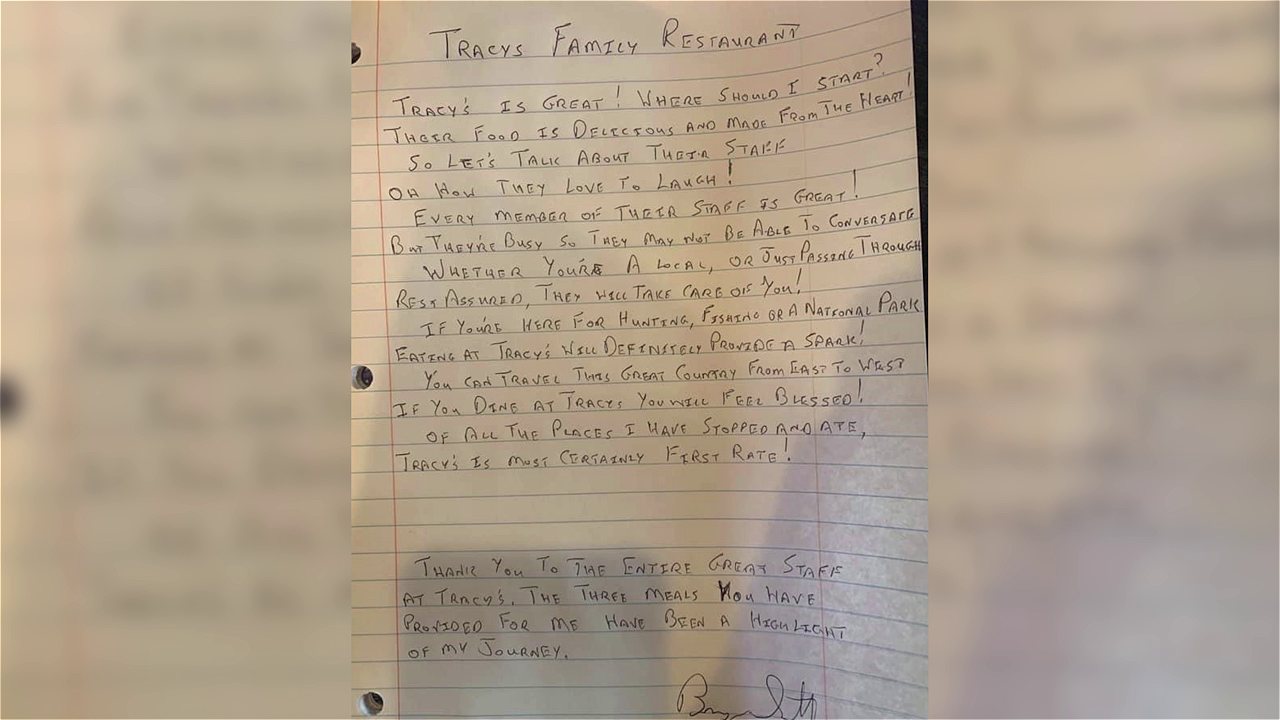 TRACYS FAMILY RESTAURANT
TRACY'S IS GREAT! WHERE SHOULD I START?
THEIR FOOD IS DELICIOUS AND MADE FROM THE HEART!
SO LET'S TALK ABOUT THEIR STAFF
OH HOW THEY LOVE TO LAUGH!
EVERY MEMBER OF THEIR STAFF IS GREAT!
BUT THEY'RE BUSY SO THEY MAY NOT BE ABLE TO CONVERSATE
WHETHER YOU'RE A LOCAL, OR JUST PASSING THROUGH
REST ASSURED, THEY WILL TAKE CARE OF YOU!
IF YOU'RE HERE FOR HUNTING, FISHING OR A NATIONAL PARK
EATING AT TRACY'S WILL DEFINITELY PROVIDE A SPARK!
YOU CAN TRAVEL THIS GREAT COUNTRY FROM EAST TO WEST
IF YOU DINE AT TRACYS YOU WILL FEEL BLESSED!
OF ALL THE PLACES I HAVE STOPPED AND ATE,
TRACY'S IS MOST CERTAINLY FIRST RATE!
THANK YOU TO THE ENTIRE GREAT STAFF
AT TRACY'S. THE THREE MEALS YOU HAVE
PROVIDED FOR ME HAVE BEEN A HIGHLIGHT
OF MY JOURNEY.